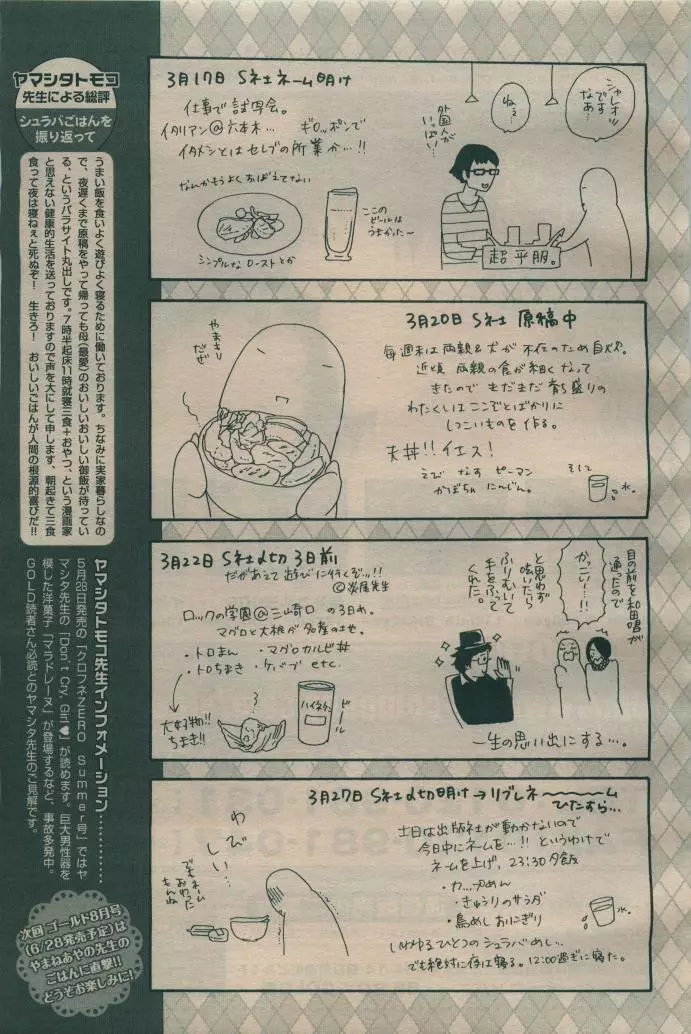 3月17日 S社ネーム明け
仕事で試写会。
イタリアン@六本木… ギロッポンで
イタメシとはセレブの所業か…!!
なんかもうよくおぼえてない
シンプルなローストとか
ここの
ビールは
うまかった〜
外国人が
いっぱい…
ねぇ…
シャレオツ
ですなあ
超平服。
3月20日 S社 原稿中
毎週末は両親&犬が不在のため自炊。
近頃 両親の食が細くなって
きたのでまだまだ育ち盛りの
わたくしはここぞとばかりに
しつこいものを作る。
天丼!!イエス!
えび なす ピーマン
かぼちゃ にんじん。
水。
やまもり
だぜ
3月22日 S社〆切3日前
だがあえて遊びに行くぞ…!!
ロックの学園@三崎口の3日め。
マグロと大根が名産の土地。
・トロまん ・マグロカルビ丼
・トロちまき ・ケバブ etc.
大好物!!
ちまき!!
ハイネケン
ビール
目の前を和田唱が
通ったので
かっこいー…!!
と思わず
呟いたら
ふりむいて
手をふって
くれた。
一生の思い出にする…。
3月27日 S社〆切明け→リブレネ〜〜〜ム
ひたすら…
土日は出版社が動かないので
今日中にネームを…!! というわけで
ネームを上げ、23:30夕飯
・カップめん
・きゅうりのサラダ
・鳥めしおにぎり
水。
いわゆるひとつのシュラバめし…
でも絶対に夜は寝る。12:00過ぎに寝た。
わびしい…
でもネーム
おわった
もんね
ヤマシタトモコ
先生による総評
シュラバごはんを
振り返って
うまい飯を食いよく遊びよく寝るために働いております。ちなみに実家暮らしなの
で、夜遅くまで原稿をやって帰っても母(最愛)のおいしいおいしい御飯が待ってい
る、というパラサイト丸出しです。7時半起床11時就寝三食+おやつ、という漫画家
と思えない健康的生活を送っておりますので声を大にして申します、朝起きて三食
食って夜は寝ねぇと死ぬぞ! 生きろ! おいしいごはんが人間の根源的喜びだ!!
ヤマシタトモコ先生インフォメーション…………
5月28日発売の「クロフネZERO Summer号」ではヤ
マシタ先生の「Don't Cry, Girl♥」が読めます。巨大男性器を
模した洋菓子「マラドレーヌ」が登場するなど、事故多発中。
GOLD読者さん必読とのヤマシタ先生のご見解です。
次回 ゴールド8月号
(6/28発売予定)は
やまねあやの先生の
ごはんに直撃!!
どうぞお楽しみに!